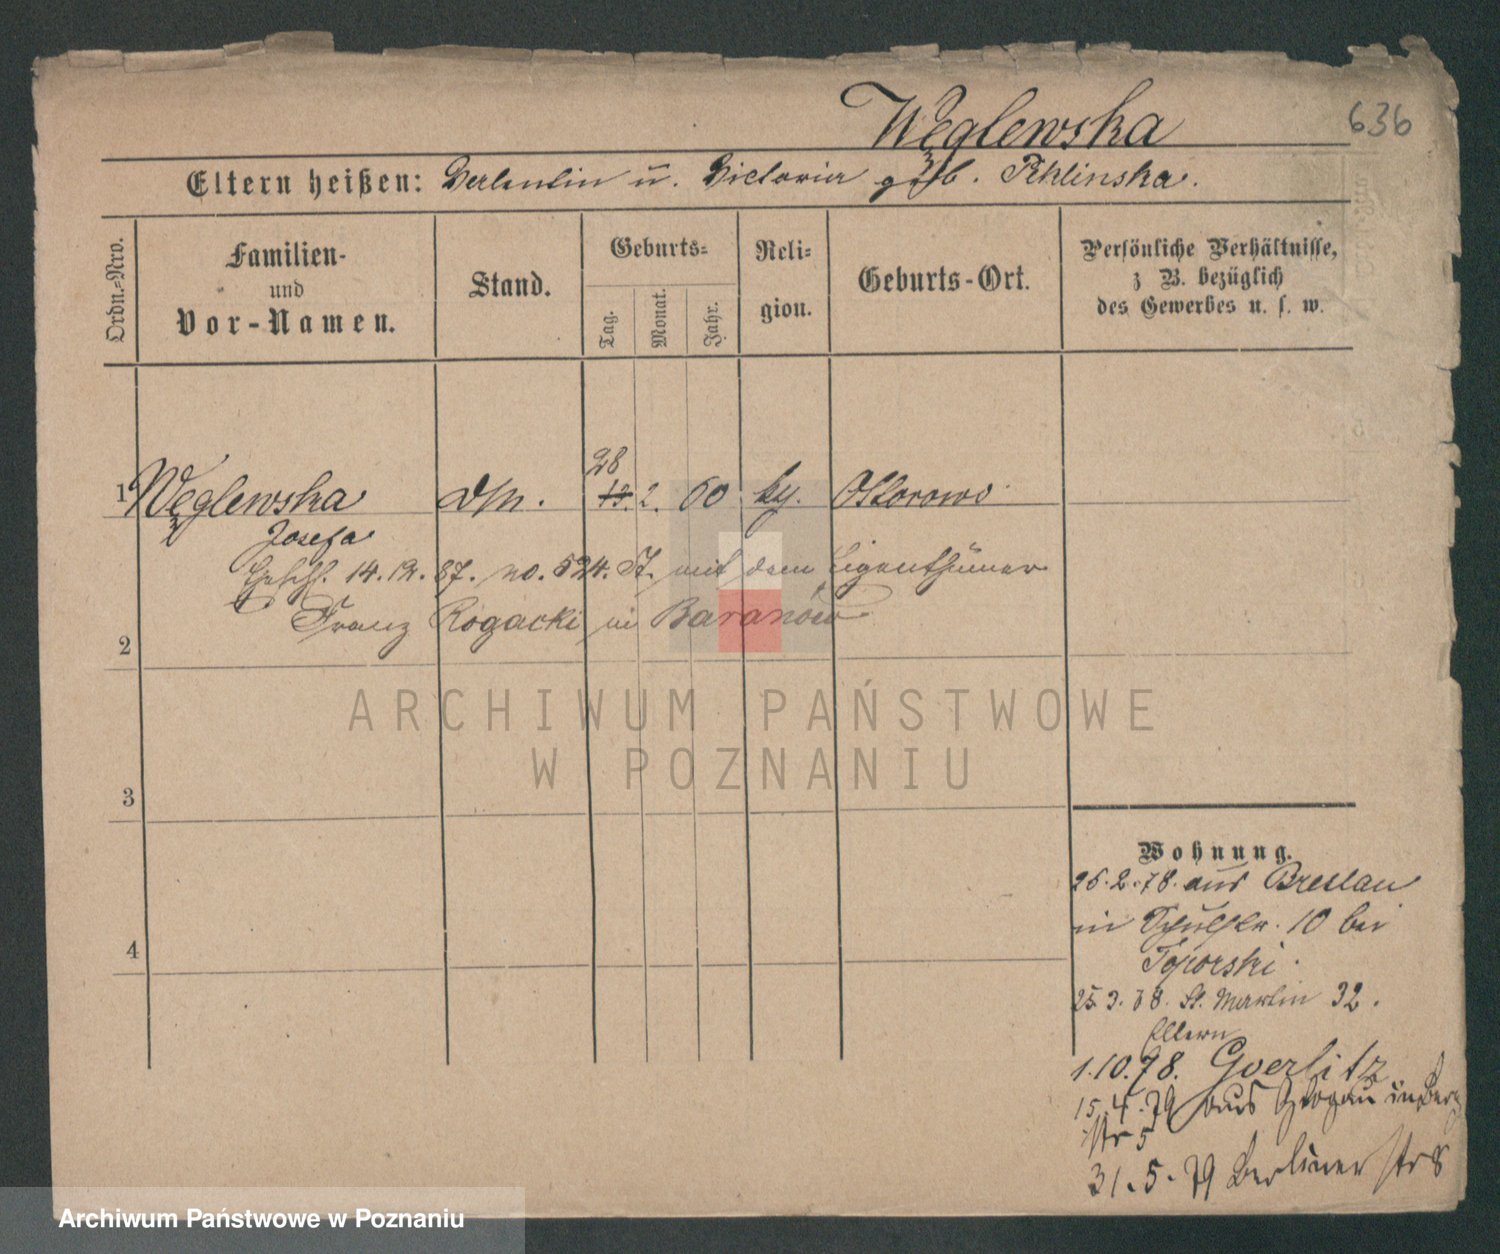 Węglewska
636
Eltern heißen: Valentin u. Victoria geb. Rhlinska.
Ordn.-Nro.
Familien-
und
Vor-Namen.
Stand.
Geburts-
Tag.
Monat.
Jahr.
Reli-
gion.
Geburts-Ort.
Persönliche Verhältnisse,
z B. bezüglich
des Gewerbes u. s. w.
28
1 Węglewska 13. 2. 60 Ostorowo
Josefa
14. 12. 87. no. 524. mit dem Eigenthümer
Franz Rogacki in Baranówo
2
3
4
ARCHIWUM PAŃSTWOWE
W POZNANIU
Wohnung.
26.2.78. aus Breslau
in Schulstr. 10 bei
Toporski.
25.3.78. St. Martin 32.
Eltern
1.10.78. Goerlitz
15.4.79 aus Glogau in Berg
str 5
31.5.79 Berliner str 8
Archiwum Państwowe w Poznaniu